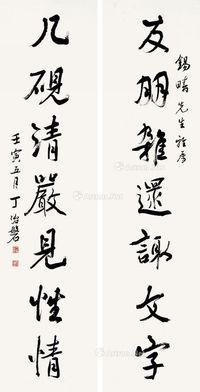 錫疇先生雅屬
友朋雜還識文字
几硯清嚴見性情
壬寅五月丁治磐